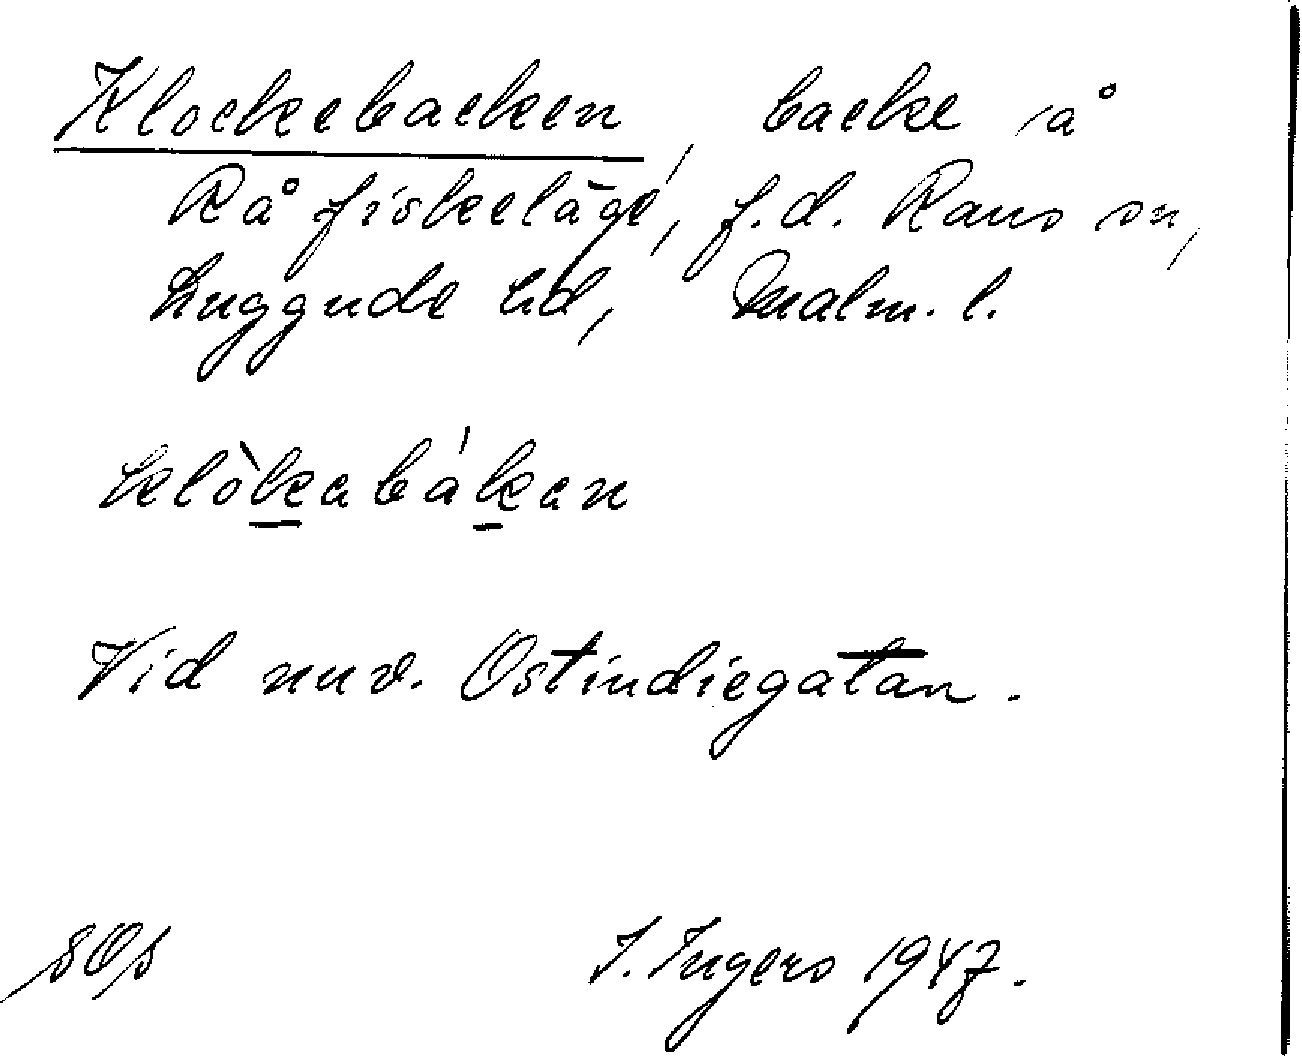 Klockebacken, backe å
Rå fiskeläge, f.d. Raus sn,
Luggude hd, Malm. l.
klòkabákan
Vid nuv. Ostindiegatan.
I. Ingers 1947.